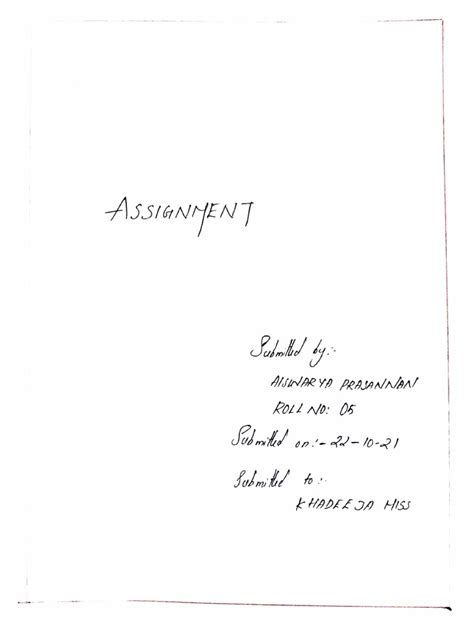 ASSIGNMENT
Submitted by:-
AISWARYA PRASANNAN
ROLL NO: 05
Submitted on:- 22-10-21
Submitted to:-
KHADEEJA MISS